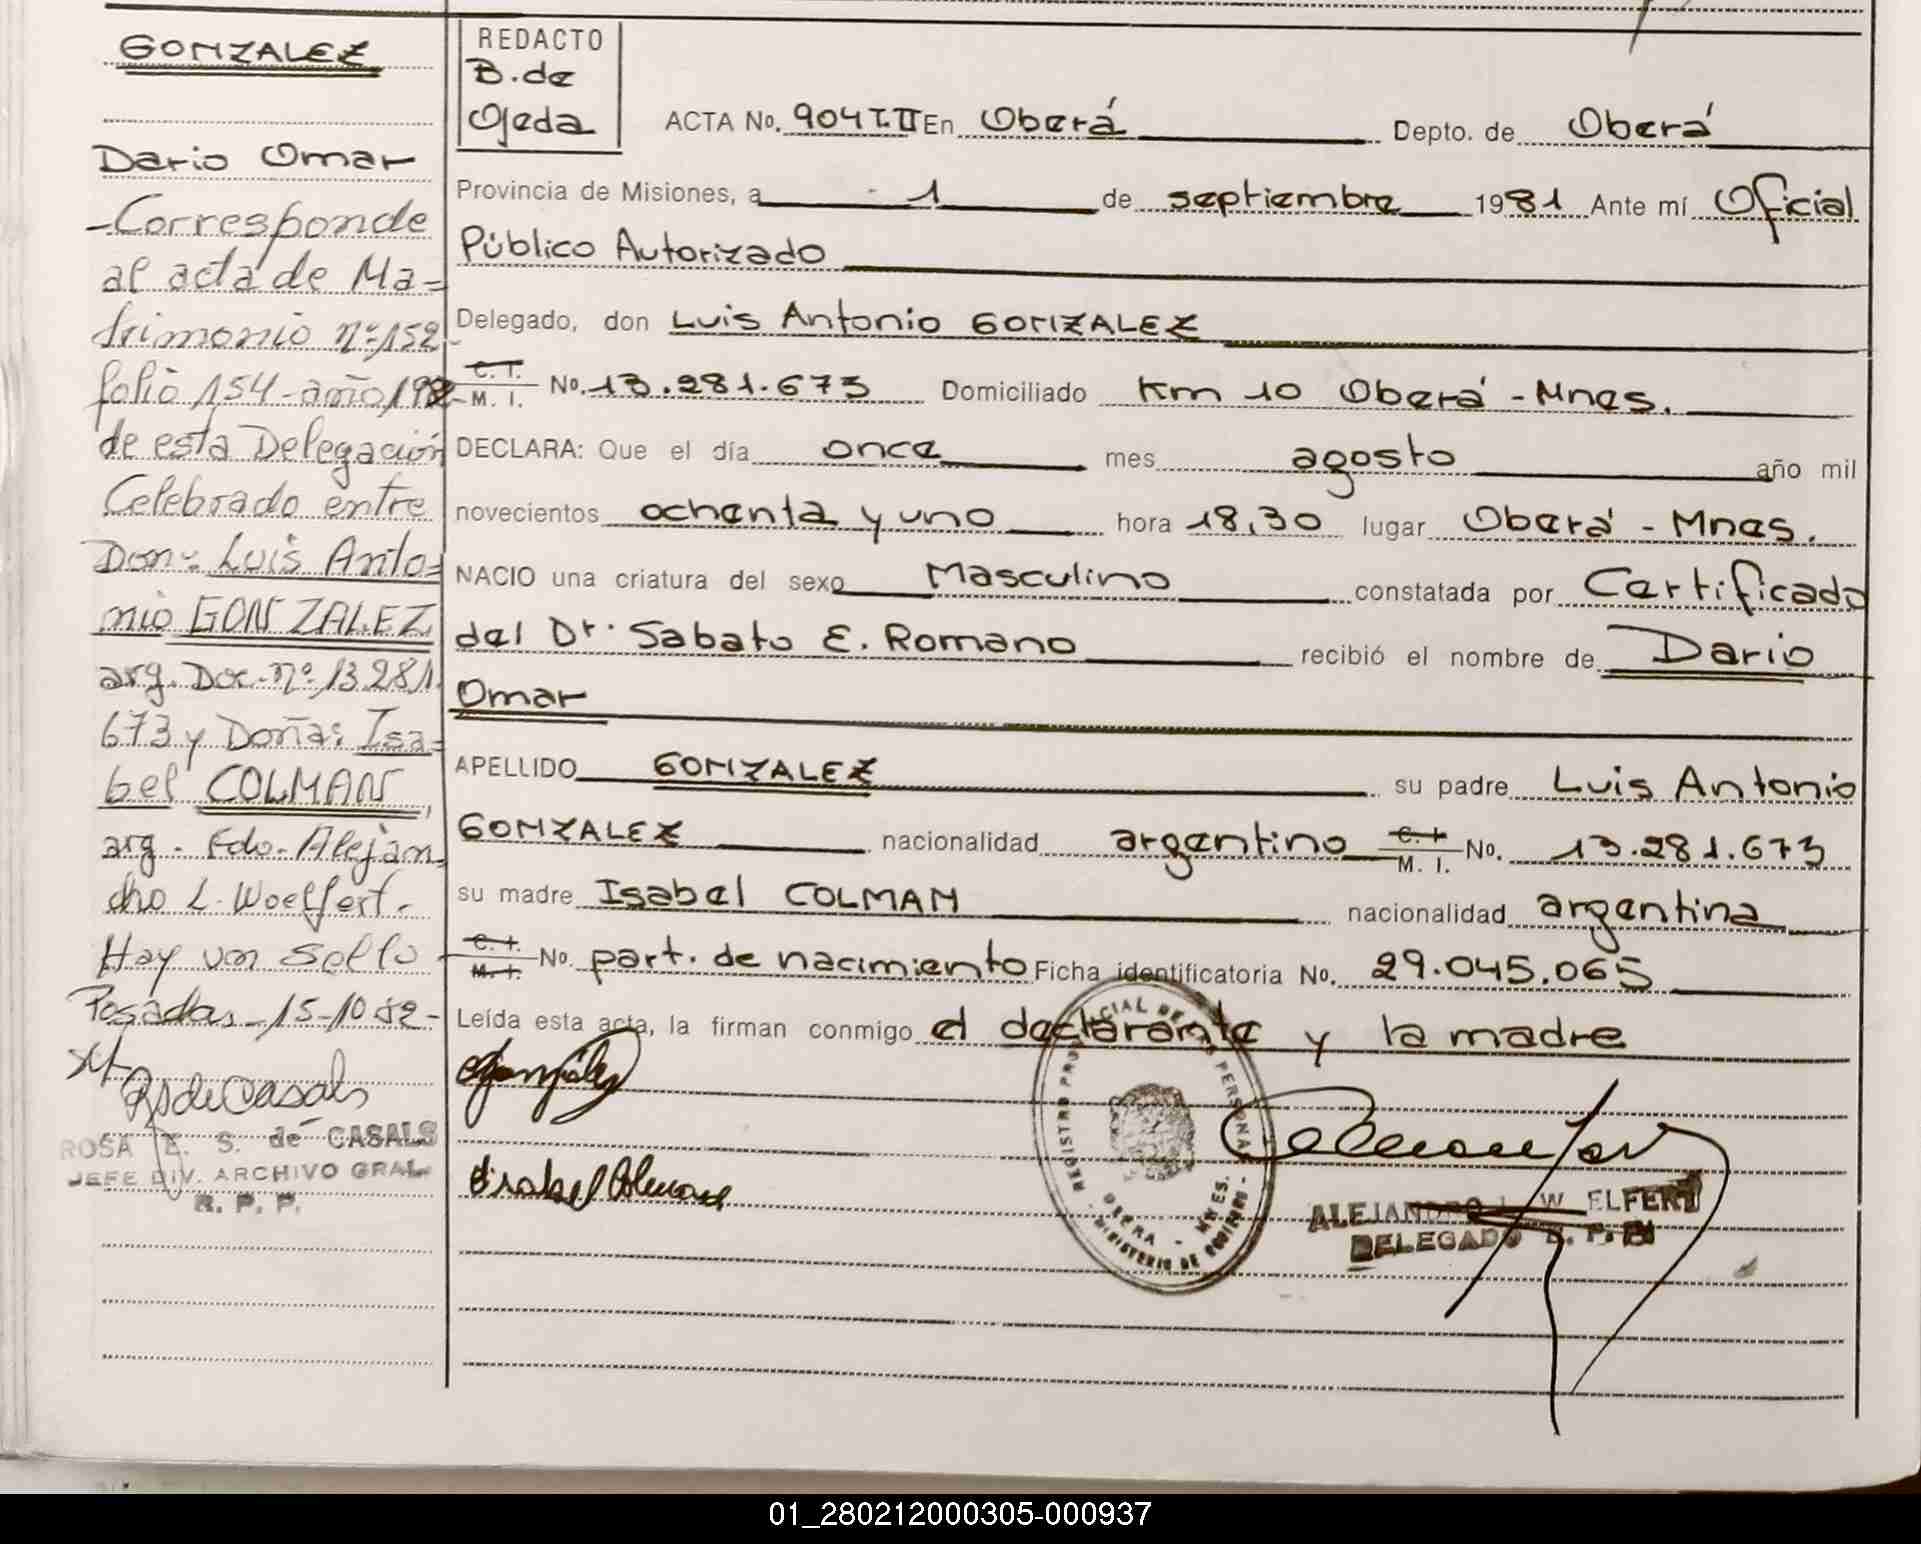 GONZALEZ
Dario Omar
-Corresponde
al acta de Ma=
trimonio nº 152
folio 154-año 198
de esta Delegación
Celebrado entre
Don: Luis Anto=
nio GONZALEZ
arg. Doc. nº 13.281.
673 y Doña: Isa=
bel COLMAN,
arg. Fdo. Alejan
dro L. Woelfert.
Hay un sello
Posadas-15-10-82-
RSdeCasals
ROSA E. S. de CASALS
JEFE DIV. ARCHIVO GRAL
R. P. P.
REDACTO
B. de
Ojeda
ACTA No. 904 T.II En Oberá Depto. de Oberá
Provincia de Misiones, a 1 de septiembre 1981 Ante mí Oficial
Público Autorizado
Delegado, don Luis Antonio GONZALEZ
C. I. M. I. No. 13.281.673 Domiciliado Km 10 Oberá - Mnes.
DECLARA: Que el día once mes agosto año mil
novecientos ochenta y uno hora 18,30 lugar Oberá - Mnes.
NACIO una criatura del sexo Masculino constatada por Certificado
del Dr. Sabato E. Romano recibió el nombre de Dario
Omar
APELLIDO GONZALEZ su padre Luis Antonio
GONZALEZ nacionalidad argentino C. I. M. I. No. 13.281.673
su madre Isabel COLMAN nacionalidad argentina
C. I. M. I. No. part. de nacimiento Ficha identificatoria No. 29.045.065
Leída esta acta, la firman conmigo el declarante y la madre
González
Isabel Colman
REGISTRO PROVINCIAL DE LAS PERSONAS
OBERA - MNES.
MINISTERIO DE GOBIERNO
ALEJANDRO L. W ELFERT
DELEGADO R. P. P.
01_280212000305-000937